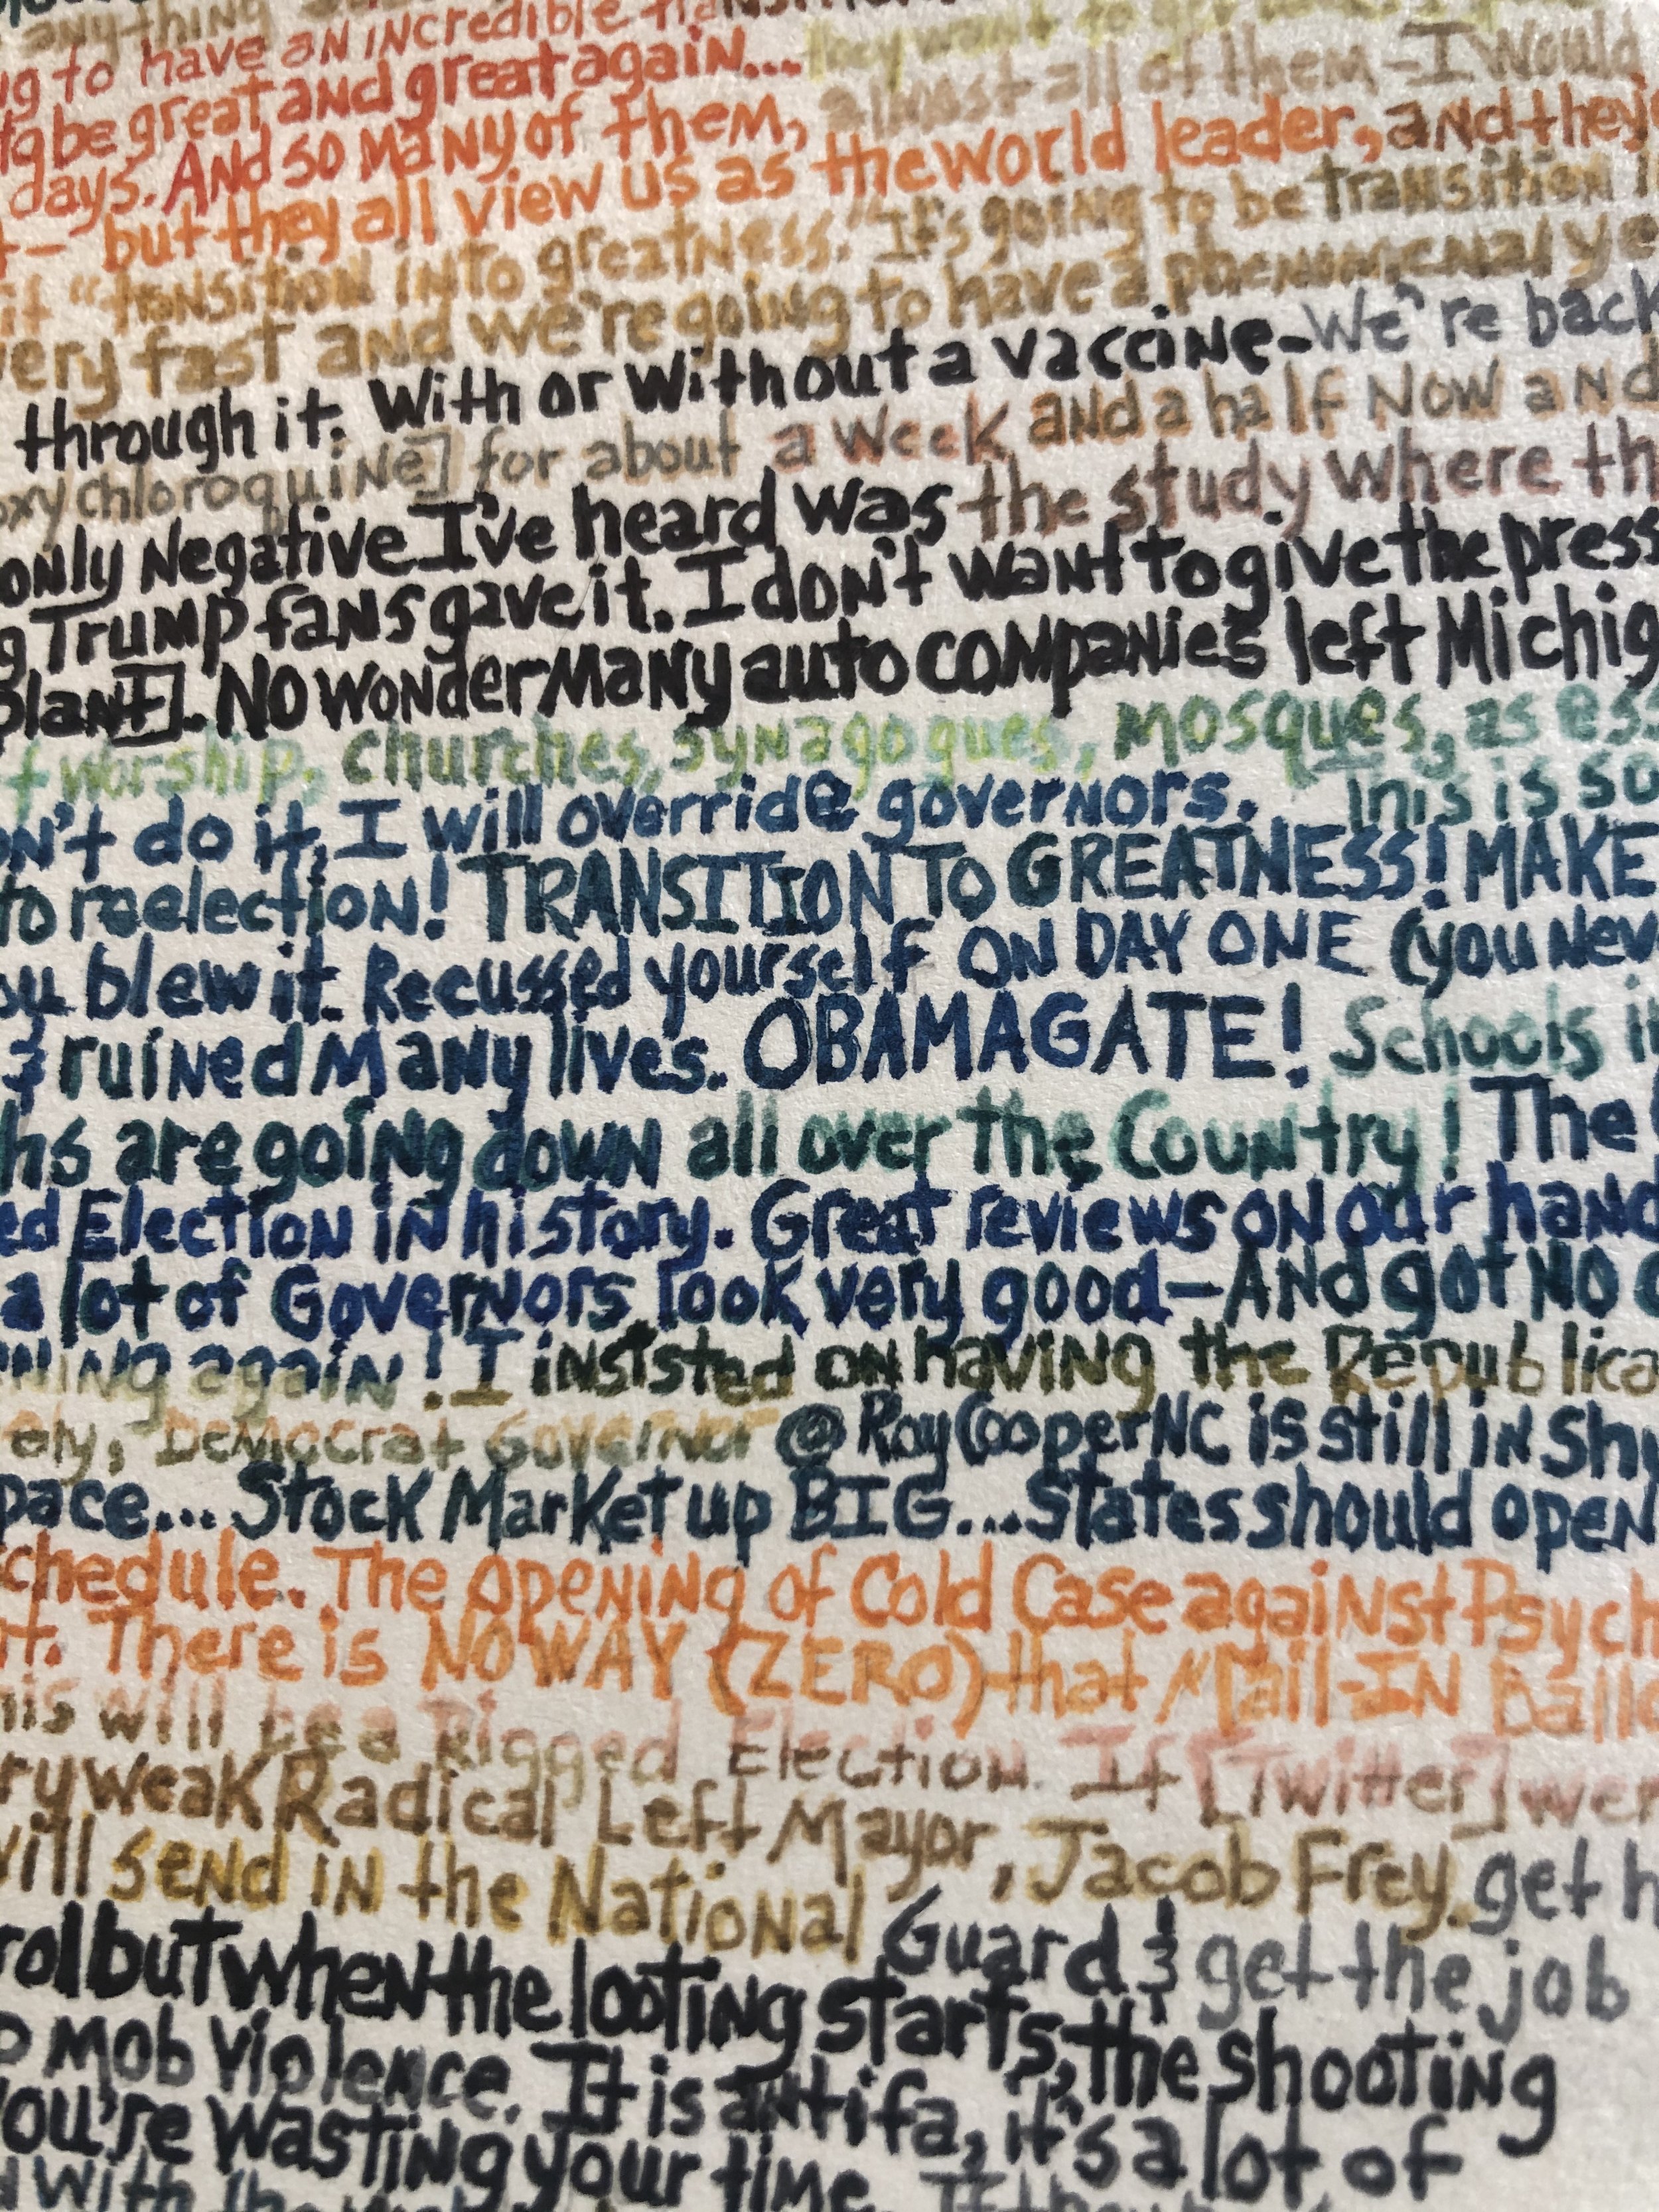 anything
to have an incredible
be great and great again... they want to
days. And so many of them, almost all of them - I would
- but they all view us as the world leader, and they
it "transition into greatness." It's going to be transition
very fast and we're going to have a phenomenal ye
through it. With or without a vaccine - We're back
oxychloroquine] for about a week and a half now and
only negative I've heard was the study where th
g Trump fans gave it. I don't want to give the press
plant]. No wonder many auto companies left Michig
f worship, churches, synagogues, mosques, as ess
on't do it, I will override governors. This is so
to reelection! TRANSITION TO GREATNESS! MAKE
ou blew it. Recussed yourself ON DAY ONE (you nev
& ruined many lives. OBAMAGATE! Schools i
hs are going down all over the Country! The
ed Election in history. Great reviews on our hand
a lot of Governors look very good - And got NO
ning again! I insisted on having the Republica
ely, Democrat Governor @RoyCooperNC is still in Sh
pace... Stock Market up BIG... States should open
chedule. The opening of Cold Case against Psych
it. There is NO WAY (ZERO) that Mail-IN Ballo
his will be a Rigged Election. If [Twitter] wer
ry weak Radical Left Mayor, Jacob Frey, get h
will send in the National Guard & get the job
rol but when the looting starts, the shooting
mob violence. It is antifa, it's a lot of
you're wasting your time.
with the